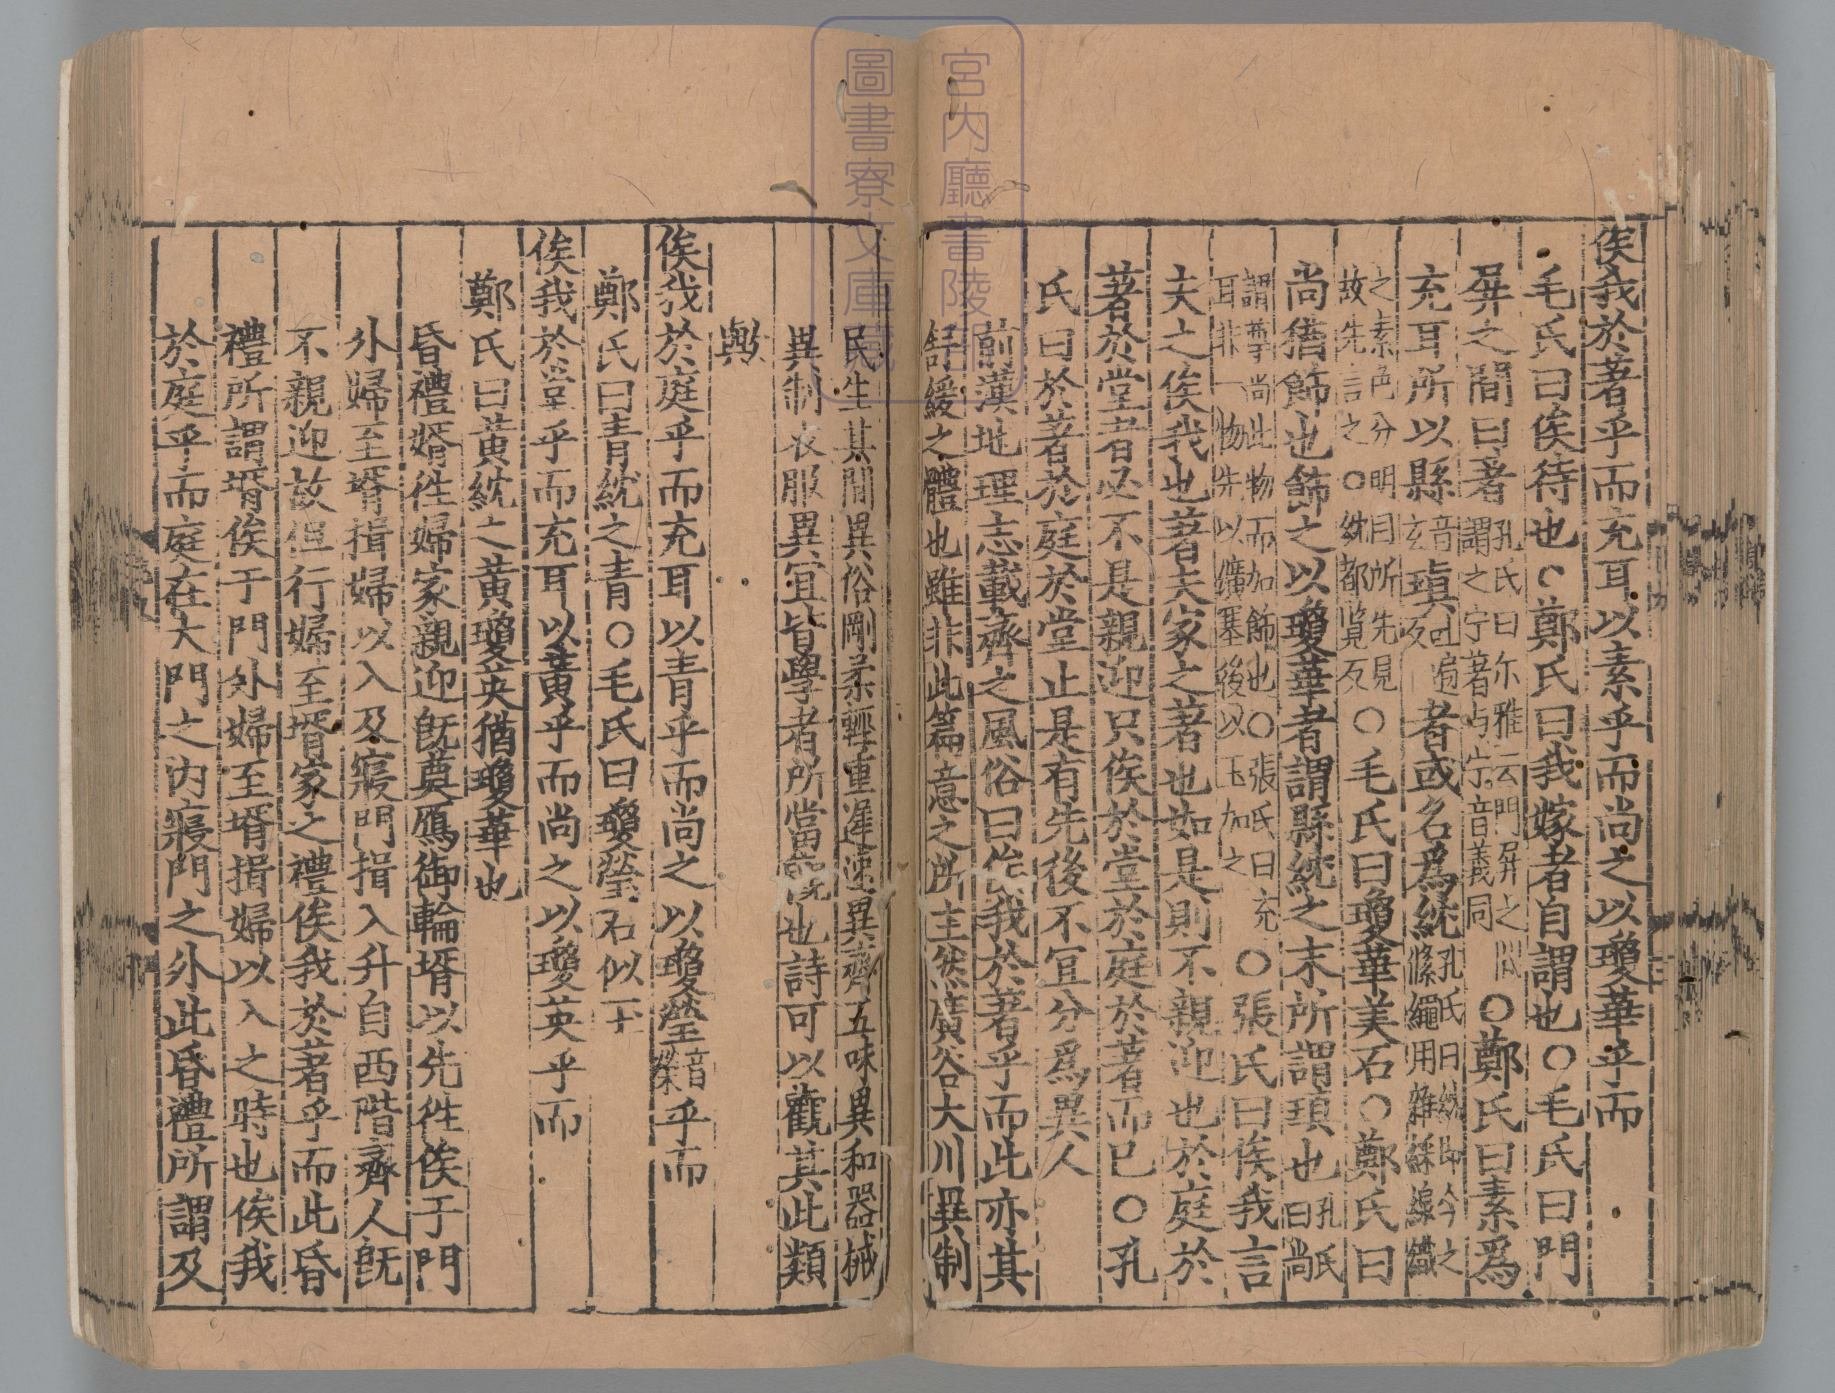 俟我於著乎而充耳以素乎而尚之以瓊華乎而
毛氏曰俟待也○鄭氏曰我嫁者自謂也○毛氏曰門
屏之間曰著孔氏曰尓雅云門屏之間謂之宁著与宁音義同○鄭氏曰素爲
充耳所以縣音玄瑱吐遍反者或名爲紞孔氏曰紞即今之絛繩用雜綵線織
之素色分明目所先見故先言之○紞都覧反○毛氏曰瓊華美石○鄭氏曰
尚猶飾也飾之以瓊華者謂縣紞之末所謂瑱也孔氏曰尚
謂尊尚此物而加飾也○張氏曰充耳非一物先以纊塞後以玉加之○張氏曰俟我言
夫之俟我也著夫家之著也如是則不親迎也於庭於
著於堂者必不是親迎只俟於堂於庭於著而已○孔
氏曰於著於庭於堂止是有先後不宜分爲異人
前漢地理志載齊之風俗曰俟我於著乎而此亦其
舒緩之體也雖非此篇意之所主然廣谷大川異制
民生其間異俗剛柔輕重遲速異齊五味異和器械
異制衣服異宜皆學者所當觀也詩可以觀其此類
歟
俟我於庭乎而充耳以青乎而尚之以瓊瑩音榮乎而
鄭氏曰青紞之青○毛氏曰瓊瑩石似玉
俟我於堂乎而充耳以黃乎而尚之以瓊英乎而
鄭氏曰黃紞之黃瓊英猶瓊華也
昏禮婿徃婦家親迎旣奠鴈御輪壻以先徃俟于門
外婦至壻揖婦以入及寢門揖入升自西階齊人旣
不親迎故但行婦至壻家之禮俟我於著乎而此昏
禮所謂壻俟于門外婦至壻揖婦以入之時也俟我
於庭乎而庭在大門之内寢門之外此昏禮所謂及
宮内廳書陵部
圖書寮文庫蔵